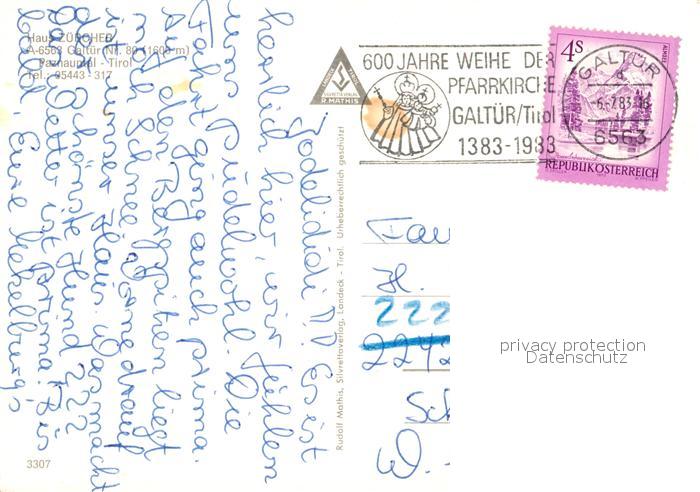 Haus ZÜRCHER
A-6563 Galtür Nr. 80 (1600 m)
Paznauntal - Tirol
Tel.: 05443 - 317
SILVRETTAVERLAG
R. MATHIS
600 JAHRE WEIHE DER
PFARRKIRCHE
GALTÜR/Tirol
1383-1983
GALTÜR
-6.-7.83-16
6563
4S
REPUBLIK ÖSTERREICH
Jodelididi!! Es ist
herrlich hier, wir fühlen
uns pudelwohl. Die
Fahrt ging auch prima.
Auf den Bergspitzen liegt
noch Schnee
ist unser Haus.
Das Wetter ist prima. Bis
bald. Eure
Rudolf Mathis, Silvrettaverlag, Landeck - Tirol. Urheberrechtlich geschützt
Fam
H.
222
2242
Sch
W.
privacy protection
Datenschutz
3307